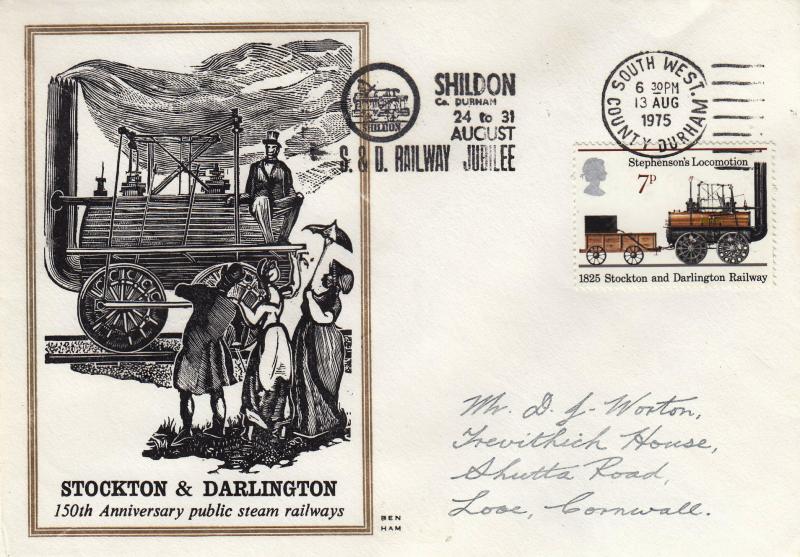 SHILDON
Co. DURHAM
24 to 31
AUGUST
S. & D. RAILWAY JUBILEE
SHILDON
SOUTH WEST.
COUNTY DURHAM.
6 30PM
13 AUG
1975
Stephenson's Locomotion
7P
1825 Stockton and Darlington Railway
Mr. D. J. Worton,
Trevithich House,
Shutta Road,
Looe, Cornwall.
STOCKTON & DARLINGTON
150th Anniversary public steam railways
BEN
HAM